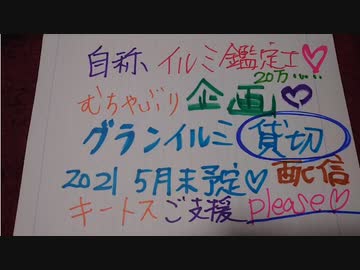 自称、イルミ鑑定士♡
20万……
むちゃぶり企画♡
グランイルミ貸切
2021 5月末予定♡配信
キートスご支援please♡